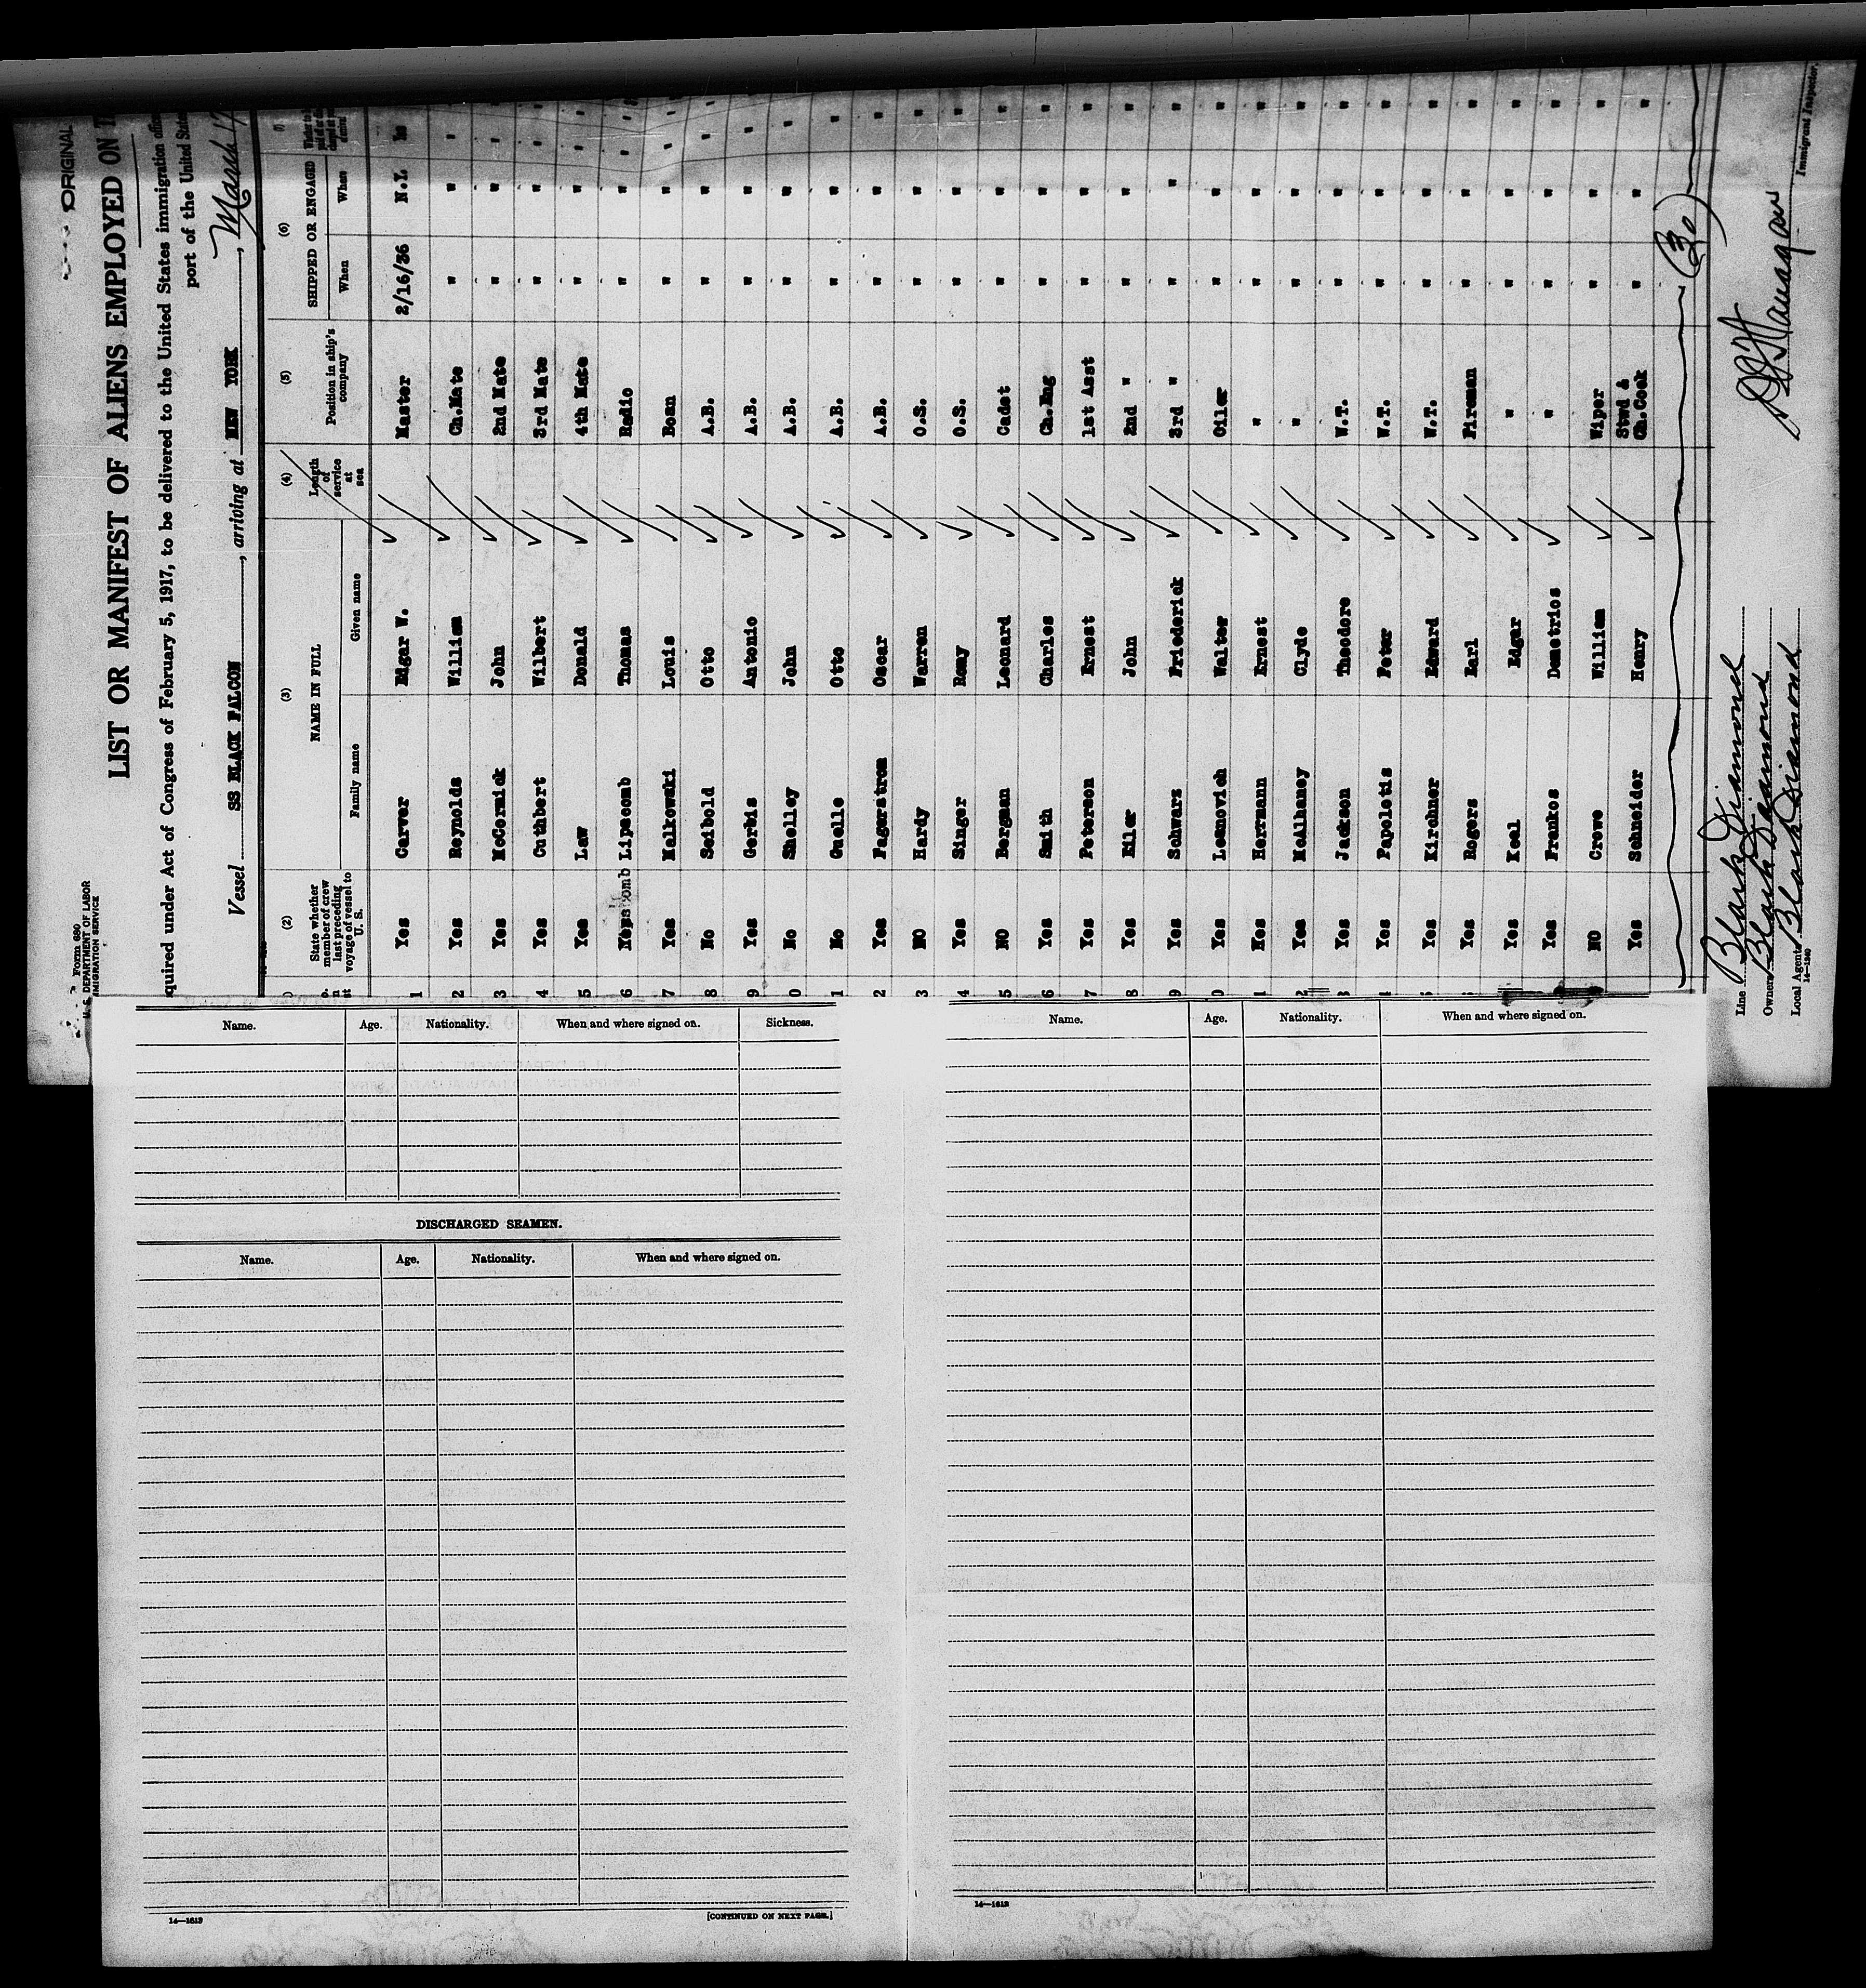 ORIGINAL
Form 680
U. S. DEPARTMENT OF LABOR
IMMIGRATION SERVICE
LIST OR MANIFEST OF ALIENS EMPLOYED ON
quired under Act of Congress of February 5, 1917, to be delivered to the United States immigration
port of the United
Vessel SS BLACK FALCON, arriving at NEW YORK, March 17
(2) (3) (4) (5) (6)
State whether member of crew last preceding voyage of vessel to U. S. NAME IN FULL Length of service at sea Position in ship's company SHIPPED OR ENGAGED
Family name Given name When When
1 Yes Carver Edgar W. Master 2/16/36 N.L
2 Yes Reynolds William Ch.Mate " "
3 Yes McCormick John 2nd Mate " "
4 Yes Cuthbert Wilbert 3rd Mate " "
5 Yes Law Donald 4th Mate " "
6 Lipscomb Thomas Radio " "
7 Yes Malkowski Louis Bosn " "
8 No Seibold Otto A.B. " "
9 Yes Gerbis Antonio A.B. " "
0 No Shelley John A.B. " "
1 No Guelle Otto A.B. " "
2 Yes Fagerstrom Oscar A.B. " "
3 NO Hardy Warren O.S. " "
4 Yes Singer Remy O.S. " "
5 NO Bergman Leonard Cadet " "
6 Yes Smith Charles Ch.Eng " "
7 Yes Peterson Ernest 1st Asst " "
8 Yes Eiler John 2nd " " "
9 Yes Schwarz Friederick 3rd " " "
0 Yes Lesnovich Walter Oiler " "
1 Herrmann Ernest " " "
2 Yes McAlhaney Clyde " " "
3 Yes Jackson Theodore W.T. " "
4 Yes Papoletis Peter W.T. " "
Yes Kirchner Edward W.T. " "
Yes Rogers Earl Fireman " "
Yes Keal Edgar " " "
Yes Frankos Demetrios " " "
NO Crowe William Wiper " "
Yes Schneider Henry Stwd & Ch.Cook " "
(30)
Line Black Diamond
Owners Black Diamond
Local Agents Black Diamond
14—1240
Immigrant Inspector.
Name. Age. Nationality. When and where signed on. Sickness.
DISCHARGED SEAMEN.
Name. Age. Nationality. When and where signed on.
14—1613 [CONTINUED ON NEXT PAGE.]
Name. Age. Nationality. When and where signed on.
14—1613